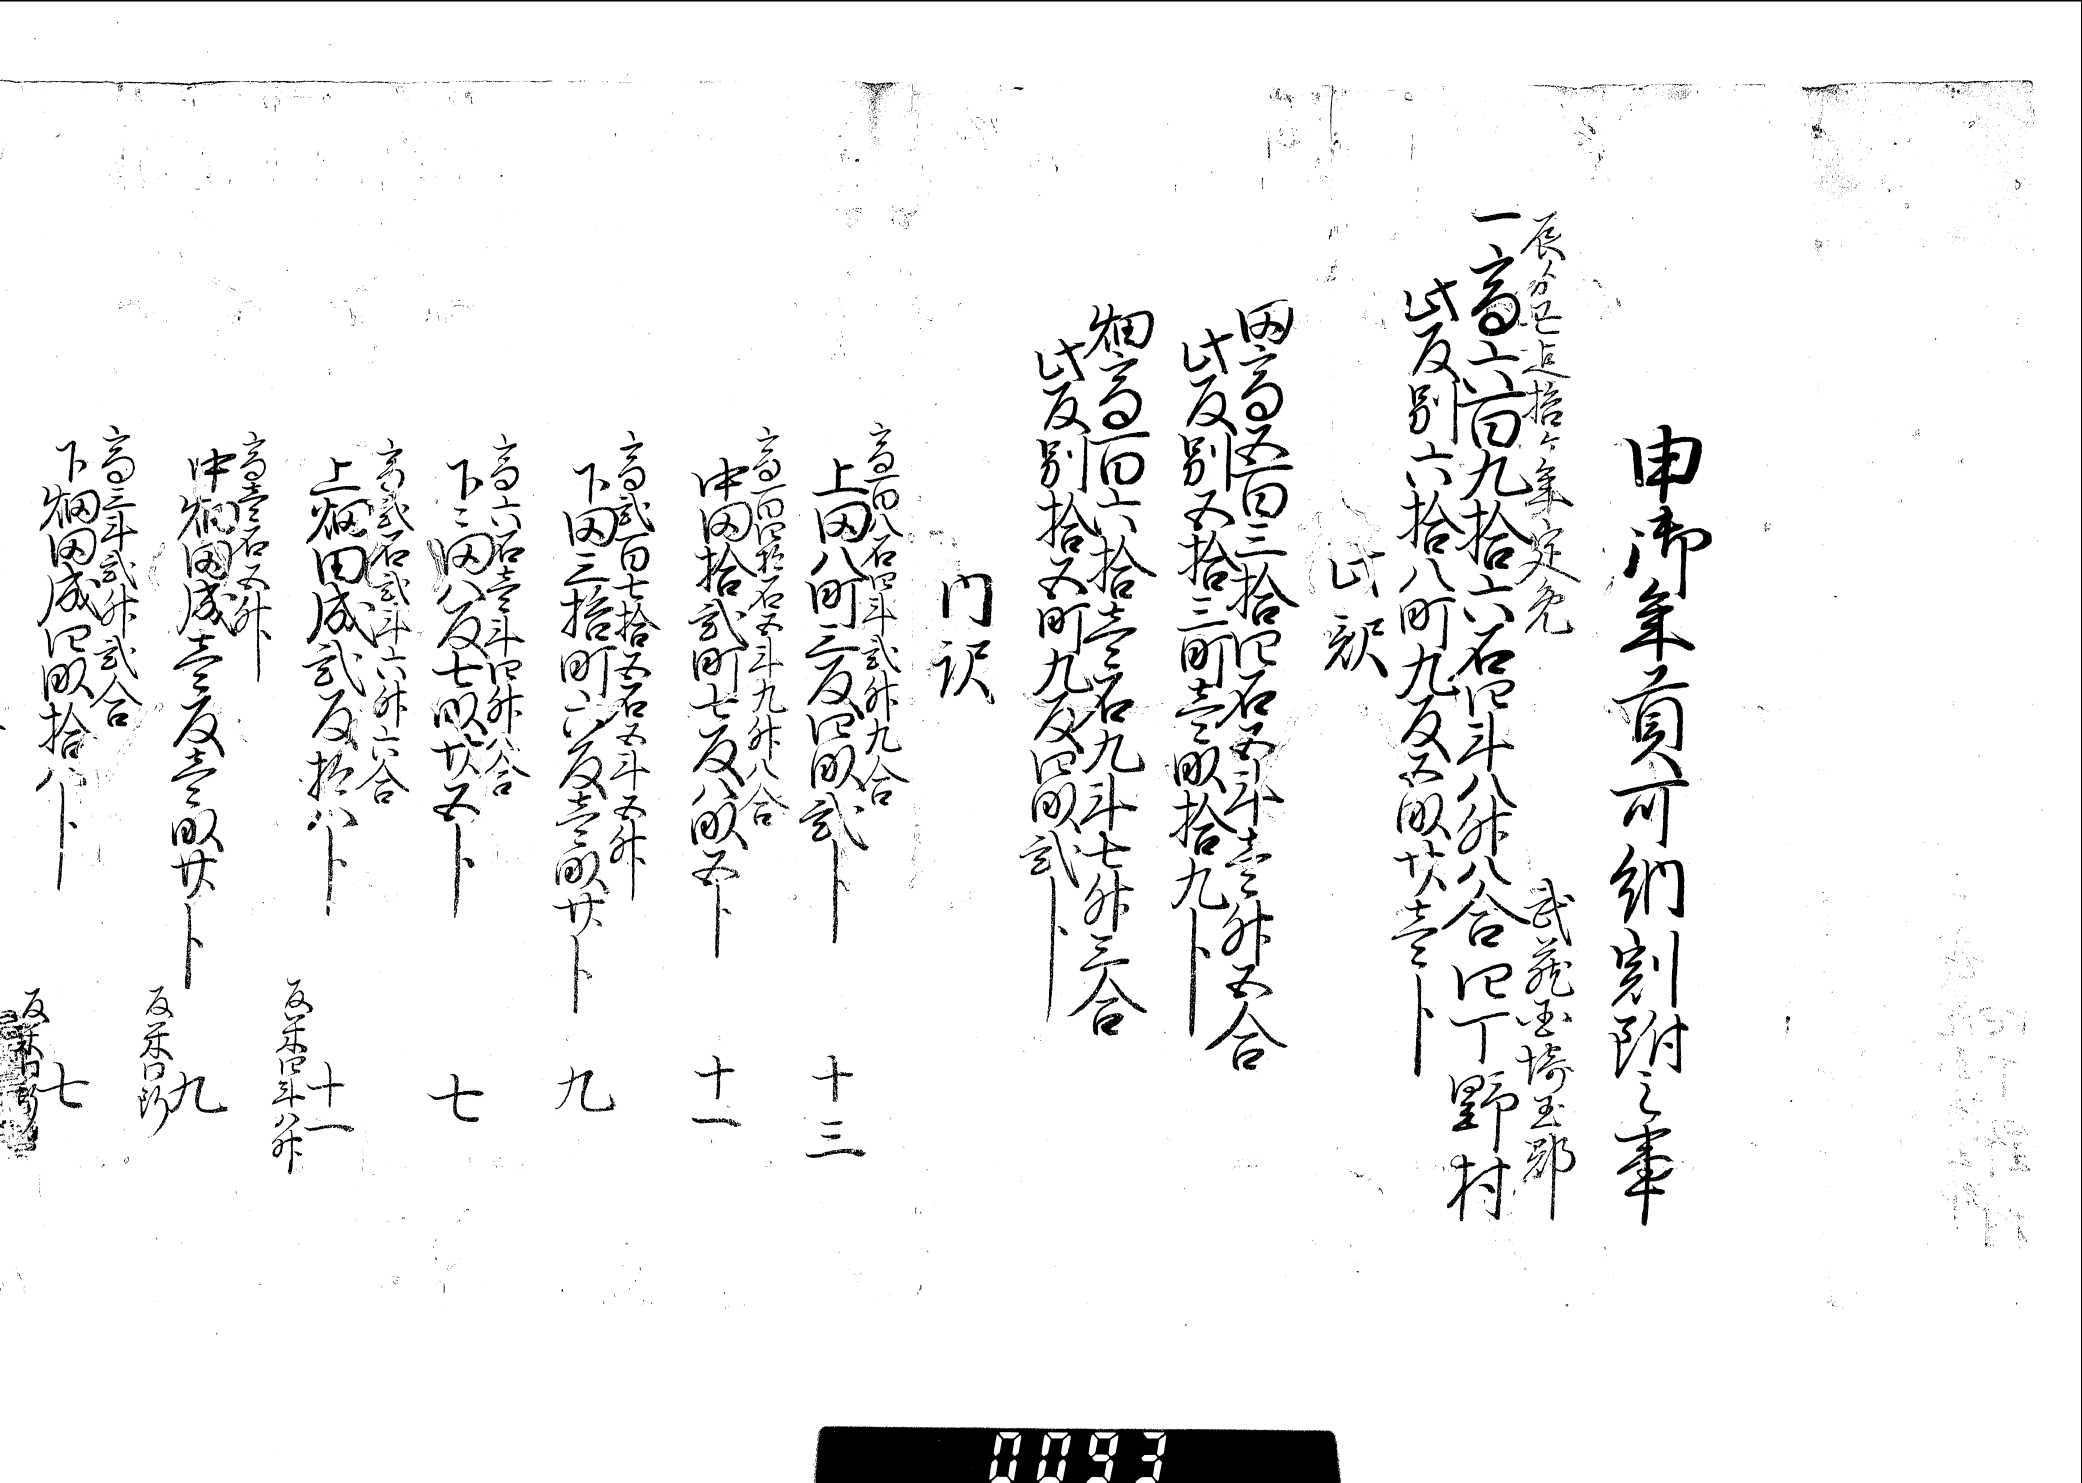 申御年貢可納割附之事
辰ゟ丑迄拾ケ年定免
武蔵国埼玉郡
一高六百九拾六石四斗八升八合 四丁野村
此反別六拾八町九反五畝廿壱卜
此訳
田高五百三拾四石五斗壱升五合
此反別五拾三町壱畝拾九卜
畑高百六拾壱石九斗七升三合
此反別拾五町九反四畝弐卜
内訳
高百八石四斗弐升九合
上田八町三反四畝弐卜 十三
高百四拾石五斗九升八合
中田拾弐町七反八畝五卜 十一
高弐百七拾五石五斗五升
下田三拾町六反壱畝廿卜 九
高六石壱斗四升八合
下々田八反七畝廿五卜 七
高弐石弐斗六升六合
上畑田成弐反拾八卜 十一
反米四斗八升
高壱石五升
中畑田成壱反壱畝廿卜 九
反米同断
高三斗弐升弐合
下畑田成四畝拾八卜 七
反米同断
0093